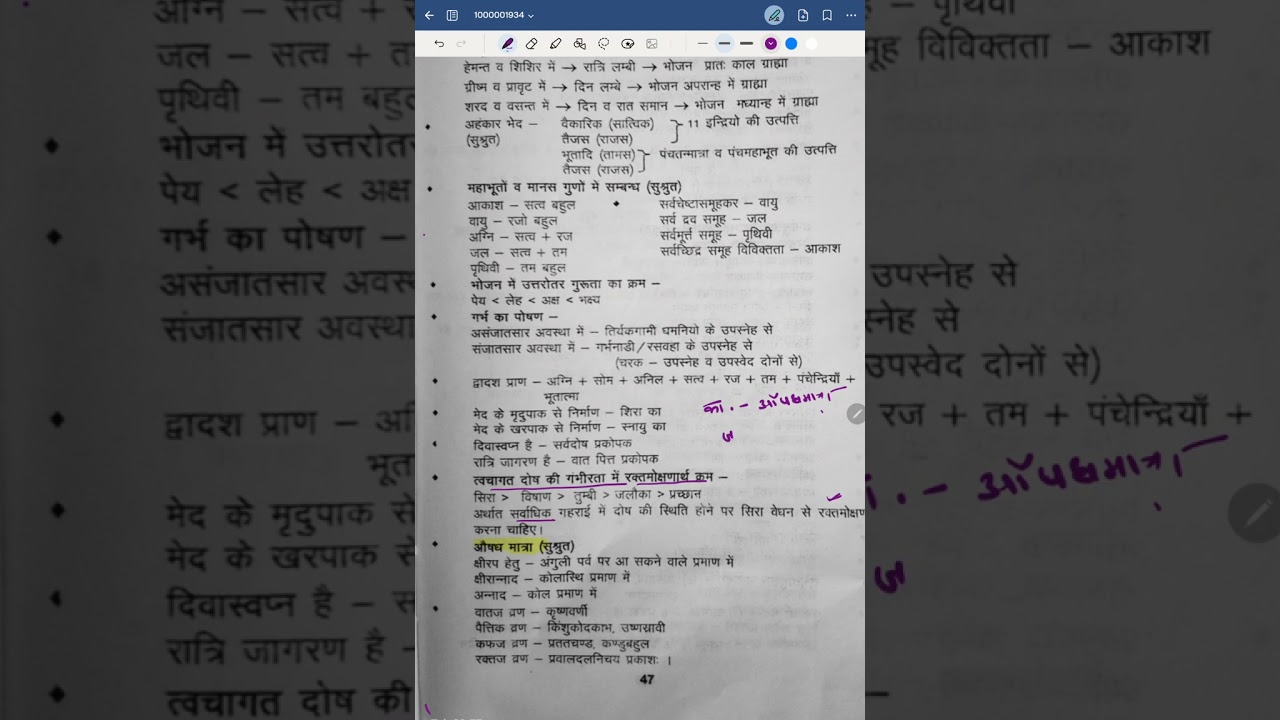 1000001934
हेमन्त व शिशिर में → रात्रि लम्बी → भोजन प्रातः काल ग्राह्य
ग्रीष्म व प्रावृट में → दिन लम्बे → भोजन अपरान्ह में ग्राह्य
शरद व वसन्त में → दिन व रात समान → भोजन मध्यान्ह में ग्राह्य
अहंकार भेद – वैकारिक (सात्विक) 11 इन्द्रियो की उत्पत्ति
(सुश्रुत) तैजस (राजस)
भूतादि (तामस) पंचतन्मात्रा व पंचमहाभूत की उत्पत्ति
तैजस (राजस)
महाभूतों व मानस गुणों मे सम्बन्ध (सुश्रुत)
आकाश – सत्व बहुल
वायु – रजो बहुल
अग्नि – सत्व + रज
जल – सत्व + तम
पृथिवी – तम बहुल
सर्वचेष्टासमूहकर – वायु
सर्व द्रव समूह – जल
सर्वमूर्त्त समूह – पृथिवी
सर्वच्छिद्र समूह विविक्तता – आकाश
भोजन में उत्तरोतर गुरूता का क्रम –
पेय < लेह < अक्ष < भक्ष्य
गर्भ का पोषण –
असंजातसार अवस्था में – तिर्यकगामी धमनियो के उपस्नेह से
संजातसार अवस्था में – गर्भनाडी/रसवहा के उपस्नेह से
(चरक – उपस्नेह व उपस्वेद दोनों से)
द्वादश प्राण – अग्नि + सोम + अनिल + सत्व + रज + तम + पंचेन्द्रियाँ +
भूतात्मा
मेद के मृदुपाक से निर्माण – शिरा का
मेद के खरपाक से निर्माण – स्नायु का
का. – औषधमात्रा
दिवास्वप्न है – सर्वदोष प्रकोपक
रात्रि जागरण है – वात पित्त प्रकोपक
त्वचागत दोष की गंभीरता में रक्तमोक्षणार्थ क्रम –
सिरा > विषाण > तुम्बी > जलौका > प्रच्छान
अर्थात सर्वाधिक गहराई में दोष की स्थिति होने पर सिरा वेधन से रक्तमोक्षण
करना चाहिए।
औषध मात्रा (सुश्रुत)
क्षीरप हेतु – अंगुली पर्व पर आ सकने वाले प्रमाण में
क्षीरान्नाद – कोलास्थि प्रमाण में
अन्नाद – कोल प्रमाण में
वातज व्रण – कृष्णवर्णी
पैत्तिक व्रण – किंशुकोदकाभ, उष्णस्रावी
कफज व्रण – प्रततचण्ड, कण्डुबहुल
रक्तज व्रण – प्रवालदलनिचय प्रकाशः ।
47